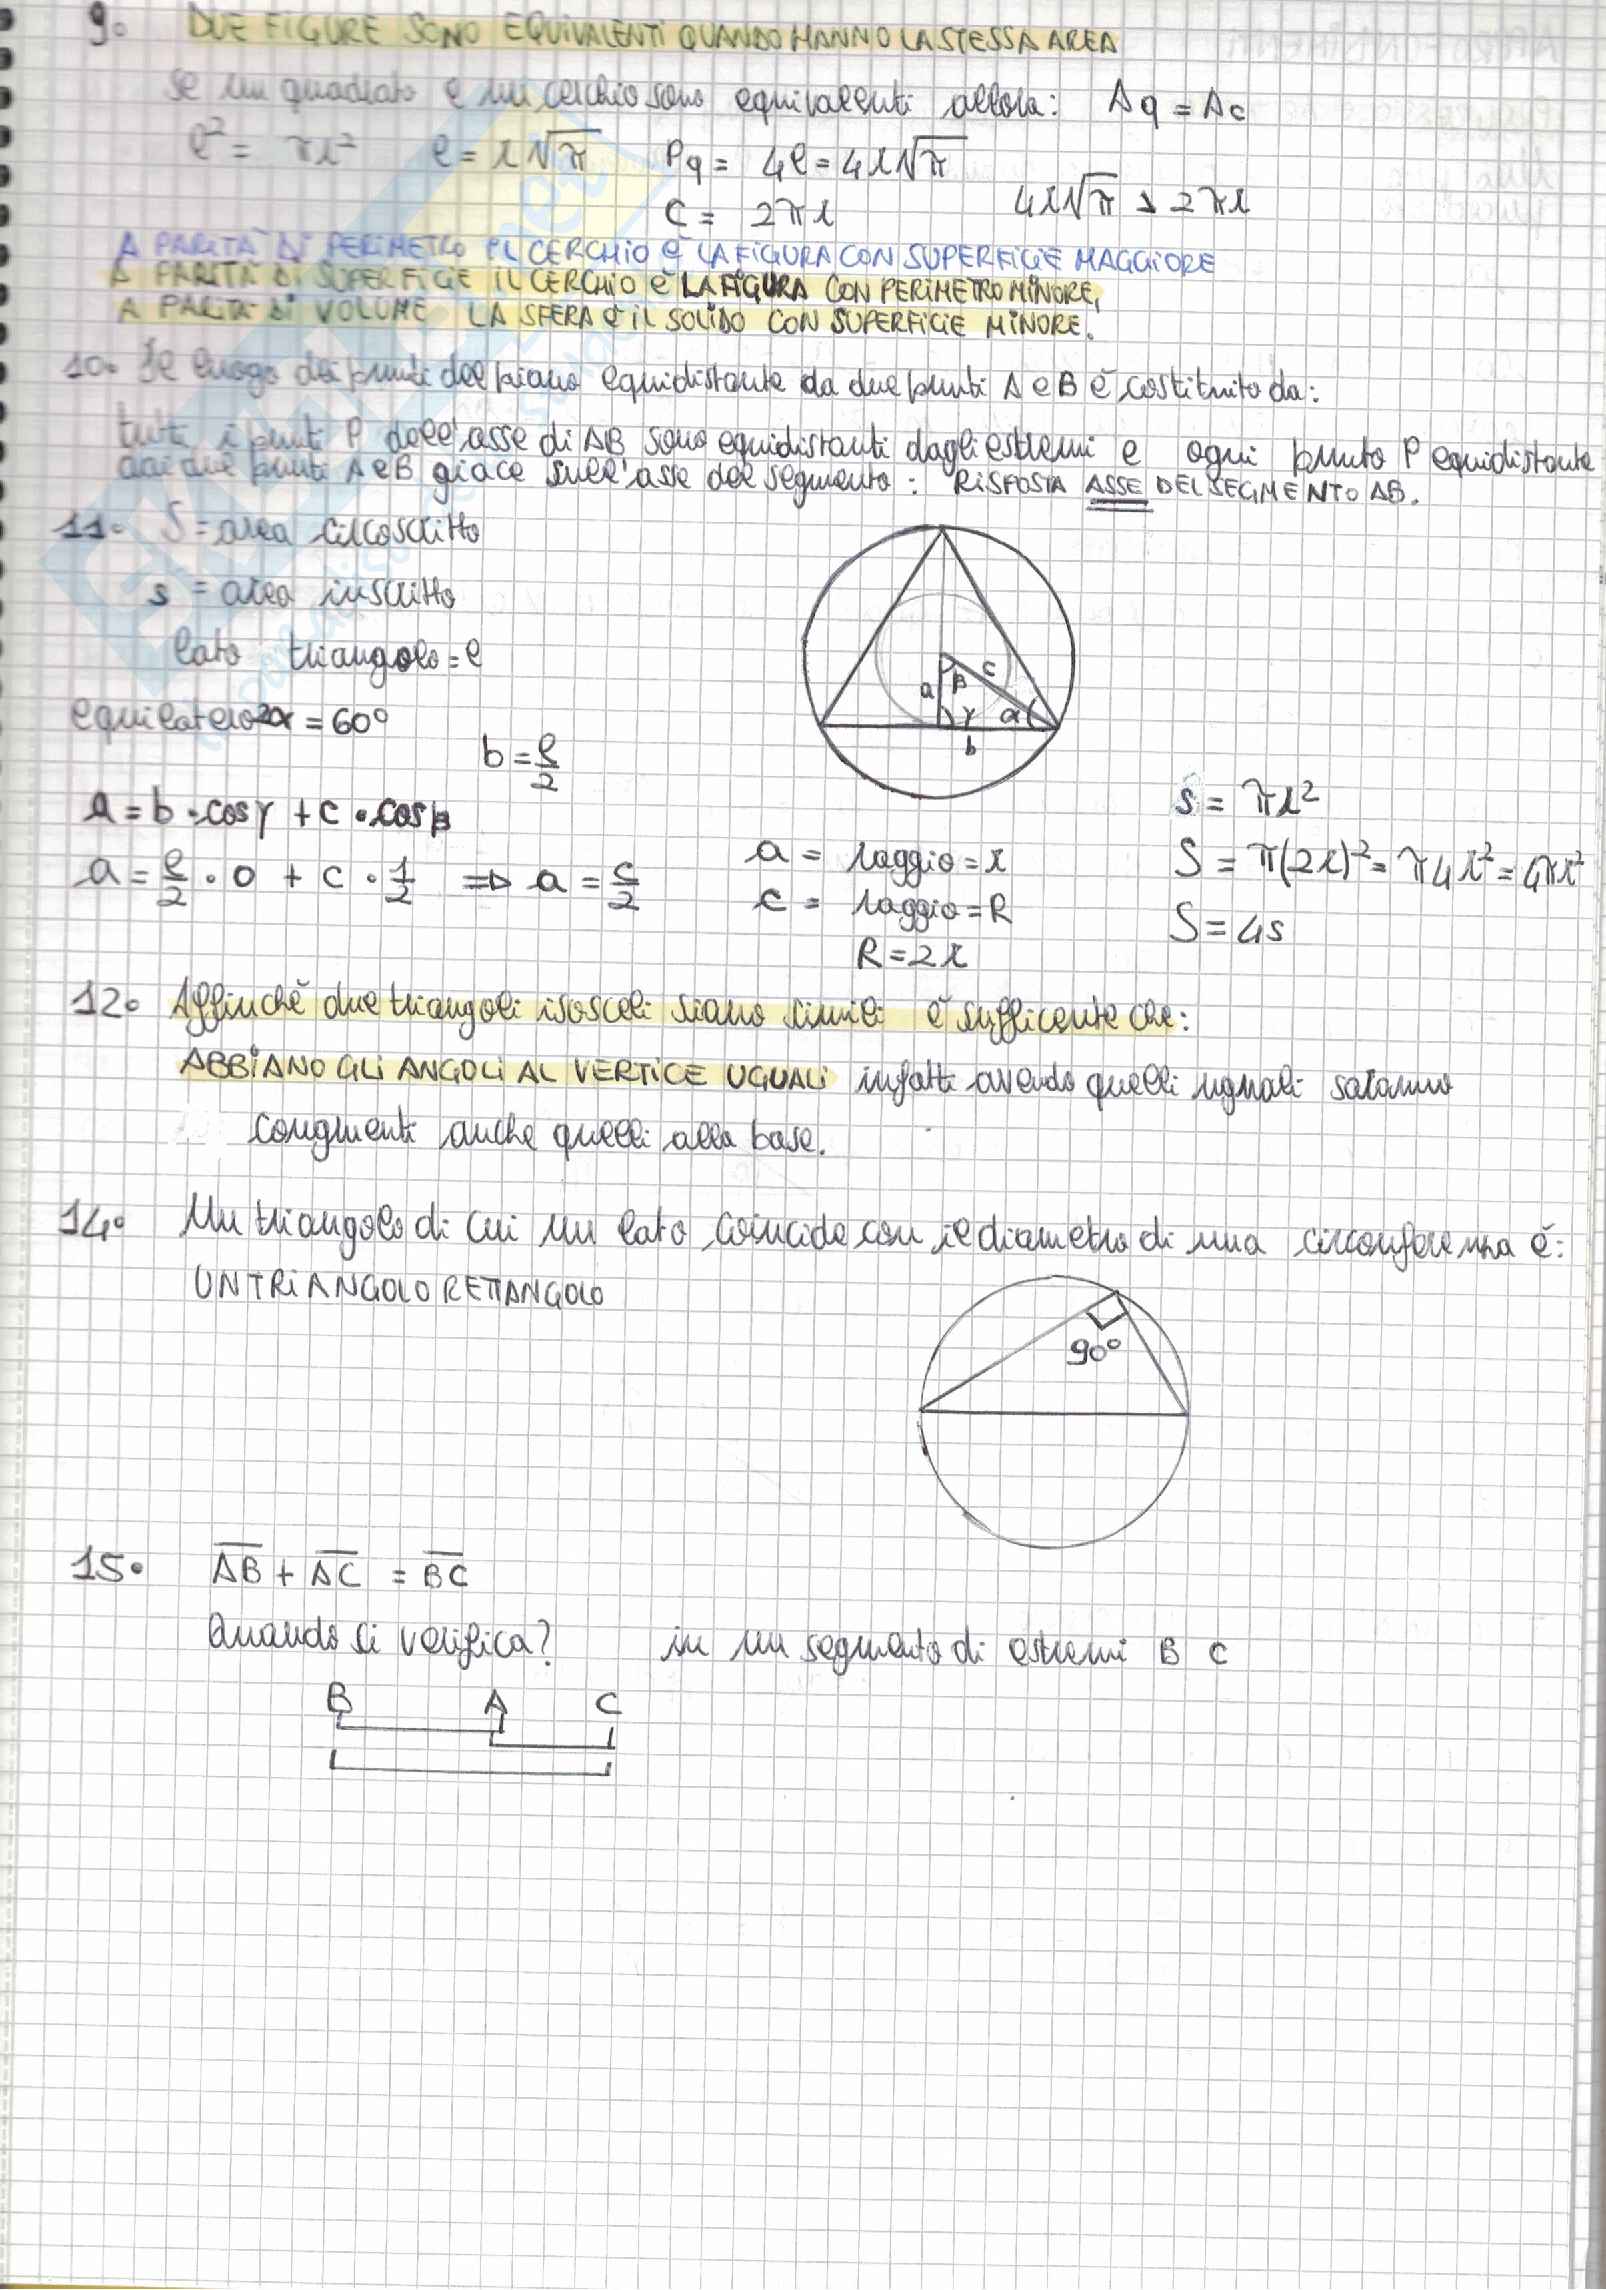 9. DUE FIGURE SONO EQUIVALENTI QUANDO HANNO LA STESSA AREA
Se un quadrato e un cerchio sono equivalenti allora: Aq = Ac
l² = πr² l = r√π Pq = 4l = 4r√π
C = 2πr 4r√π > 2πr
A PARITÀ DI PERIMETRO IL CERCHIO È LA FIGURA CON SUPERFICIE MAGGIORE
A PARITÀ DI SUPERFICIE IL CERCHIO È LA FIGURA CON PERIMETRO MINORE,
A PARITÀ DI VOLUME LA SFERA È IL SOLIDO CON SUPERFICIE MINORE.
10. Il luogo dei punti del piano equidistante da due punti A e B è costituito da:
tutti i punti P dell'asse di AB sono equidistanti dagli estremi e ogni punto P equidistante
dai due punti A e B giace sull'asse del segmento: RISPOSTA ASSE DEL SEGMENTO AB.
11. S = area circoscritto
s = area inscritto
lato triangolo = l
equilatero 2α = 60°
b = l/2
a β c
γ α
b
a = b · cosγ + c · cosβ
a = l/2 · 0 + c · 1/2 => a = c/2
a = raggio = r
c = raggio = R
R = 2r
s = πr²
S = π(2r)² = π4r² = 4πr²
S = 4s
12. Affinchè due triangoli isosceli siano simili è sufficente che:
ABBIANO GLI ANGOLI AL VERTICE UGUALI infatti avendo quelli uguali saranno
congruenti anche quelli alla base.
14. Un triangolo di cui un lato coincide con il diametro di una circonferenza è:
UN TRIANGOLO RETTANGOLO
90°
15. AB + AC = BC
Quando si verifica? in un segmento di estremi B C
B A C